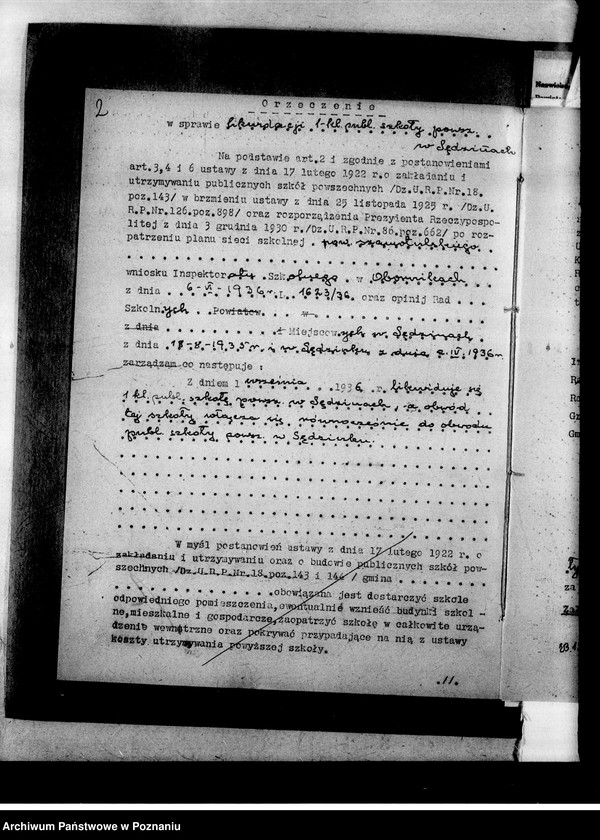 2
Orzeczenie
w sprawie likwidacji 1-kl. publ. szkoły powsz.
w Sędzinach
Na podstawie art.2 i zgodnie z postanowieniami
art.3,4 i 6 ustawy z dnia 17 lutego 1922 r.o zakładaniu i
utrzymywaniu publicznych szkół powszechnych /Dz.U.R.P.Nr.18.
poz.143/ w brzmieniu ustawy z dnia 25 listopada 1925 r. /Dz.U.
R.P.Nr.126.poz.898/ oraz rozporządzenia Prezydenta Rzeczypospo-
litej z dnia 3 grudnia 1930 r./Dz.U.R.P.Nr.86.poz.662/ po roz-
patrzeniu planu sieci szkolnej pow. szamotulskiego
wniosku Inspektora Szkolnego w Obornikach
z dnia 6-VI-1936 r. L. 1623/36. oraz opinij Rad
Szkolnych Powiatow. w
z dnia i Miejscowych w Sędzinach
z dnia 18-8-1935 r. i w Sędzinku z dnia 2.IV.1936 r.
zarządzam co następuje :
Z dniem 1 września 1936 r. likwiduje się
1 kl. publ. szkołę powsz. w Sędzinach, a obwód
tej szkoły włącza się równocześnie do obwodu
publ. szkoły powsz. w Sędzinku.
W myśl postanowień ustawy z dnia 17 lutego 1922 r. o
zakładaniu i utrzymywaniu oraz o budowie publicznych szkół pow-
szechnych /Dz.U.R.P.Nr.18.poz.143 i 144 / gmina
obowiązana jest dostarczyć szkole
odpowiedniego pomieszczenia, ewentualnie wznieść budynki szkol -
ne,mieszkalne i gospodarcze,zaopatrzyć szkołę w całkowite urzą-
dzenie wewnętrzne oraz pokrywać przypadające na nią z ustawy
koszty utrzymywania powyższej szkoły.
.11.
Nazwisko
Archiwum Państwowe w Poznaniu